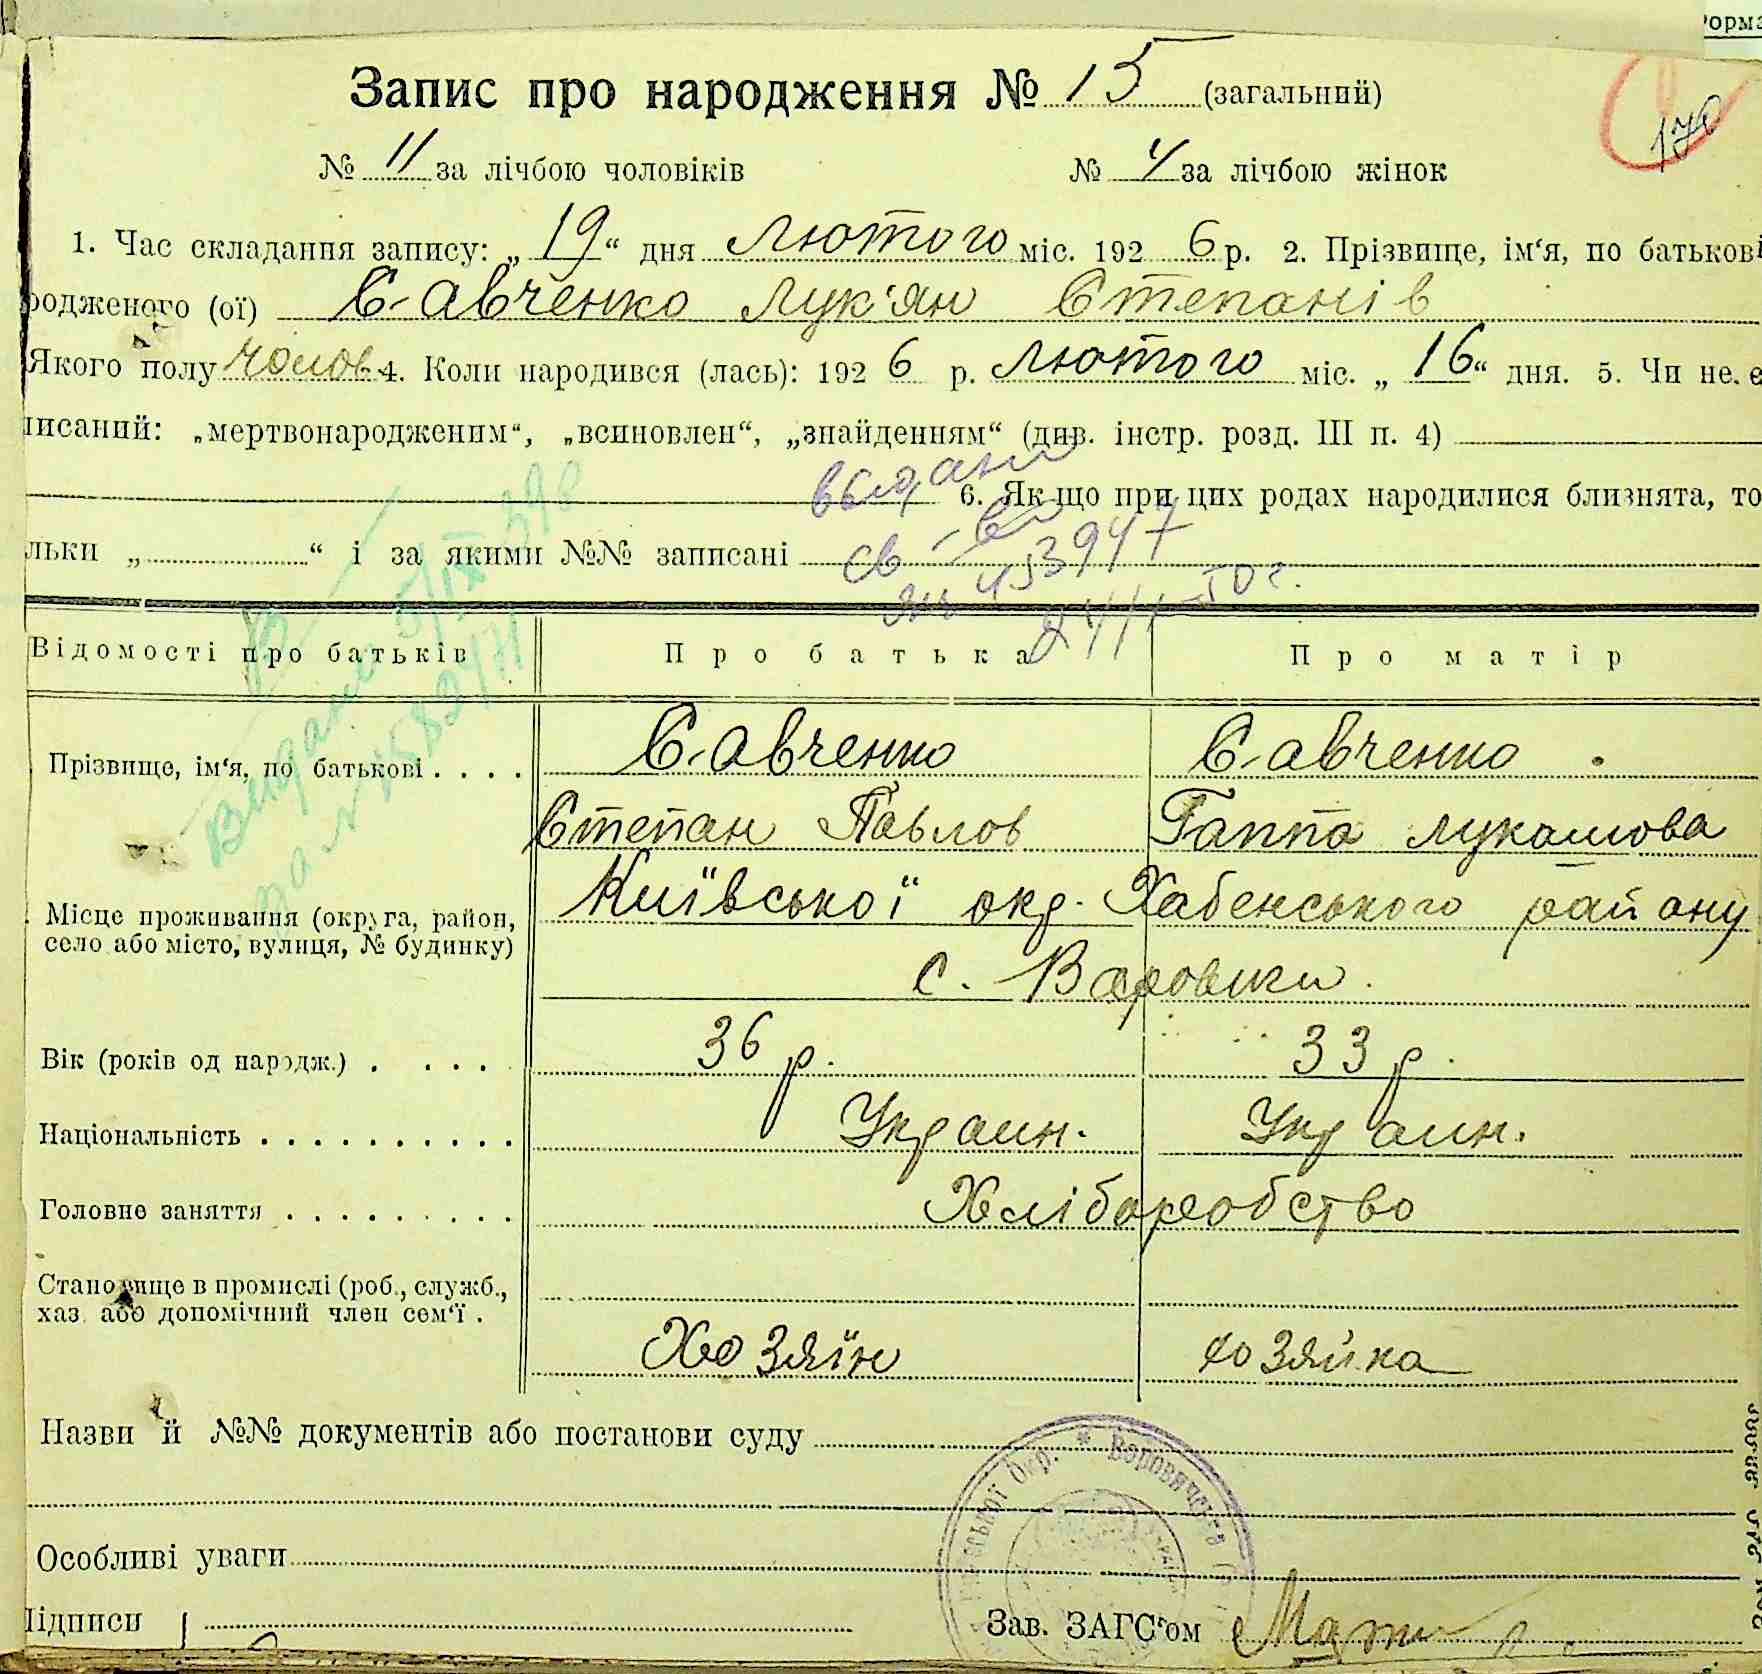 Запис про народження № 15 (загальний)
№ 11 за лічбою чоловіків № 4 за лічбою жінок
1. Час складання запису: „19“ дня лютого міс. 1926 р. 2. Прізвище, ім‘я, по батькові
родженого (ої) Савченко Лук‘ян Степанів
Якого полу чолов. 4. Коли народився (лась): 1926 р. лютого міс. „16“ дня. 5. Чи не є
писаний: „мертвонародженим“, „всиновлен“, „знайденням“ (див. інстр. розд. III п. 4)
выдано
6. Як що при цих родах народилися близнята, то
льки „ “ і за якими №№ записані
св-во
Відомості про батьків Про батька Про матір
Прізвище, ім‘я, по батькові . . . . Савченко Савченко
Степан Павлов Гаппа Лукашова
Місце проживання (округа, район, село або місто, вулиця, № будинку) Київської окр. Хабенського району
с. Варовичи.
Вік (років од народж.) . . . . 36 р. 33 р.
Національність . . . . . . . . . . Украин. Украин.
Головне заняття . . . . . . . . . Хліборобство
Становище в промислі (роб., служб.,
хаз. або допомічний член сем‘ї .
Хозяїн хозяйка
Назви й №№ документів або постанови суду
Особливі уваги
Підписи Зав. ЗАГС‘ом